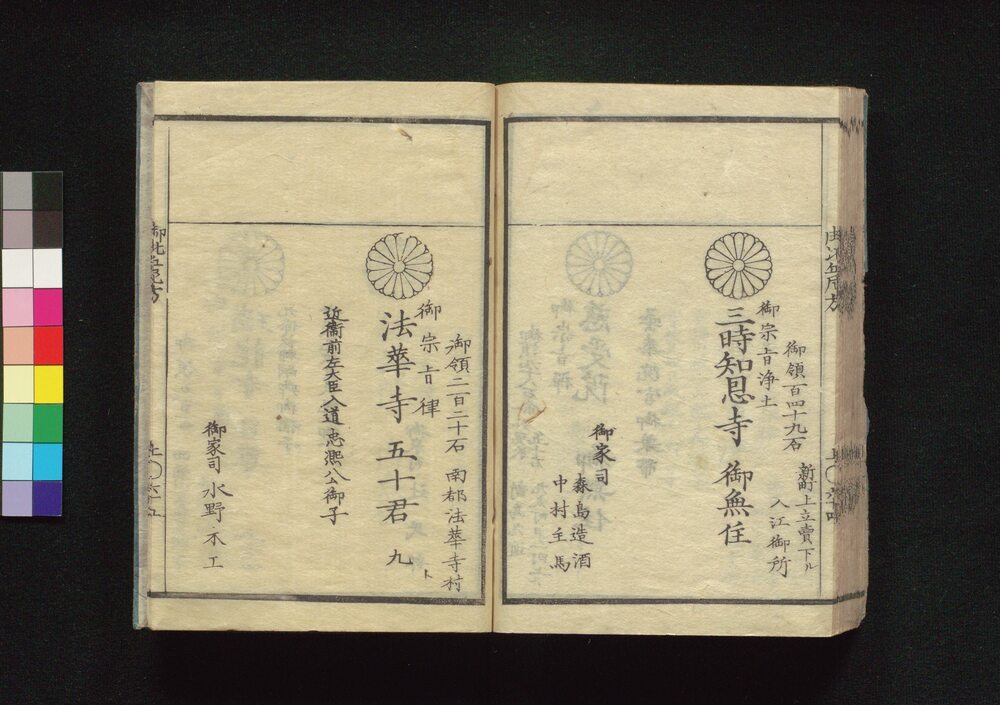 御領百四十九石
新町上立賣下ル
入江御所
御宗旨浄土
三時知恩寺 御無住
御家司
森島造酒
中村主馬
御領二百二十石 南都法華寺村
御宗旨律
法華寺 五十君 九ト
近衞前左大臣入道忠煕公御子
御家司 水野木工
御比丘尼方